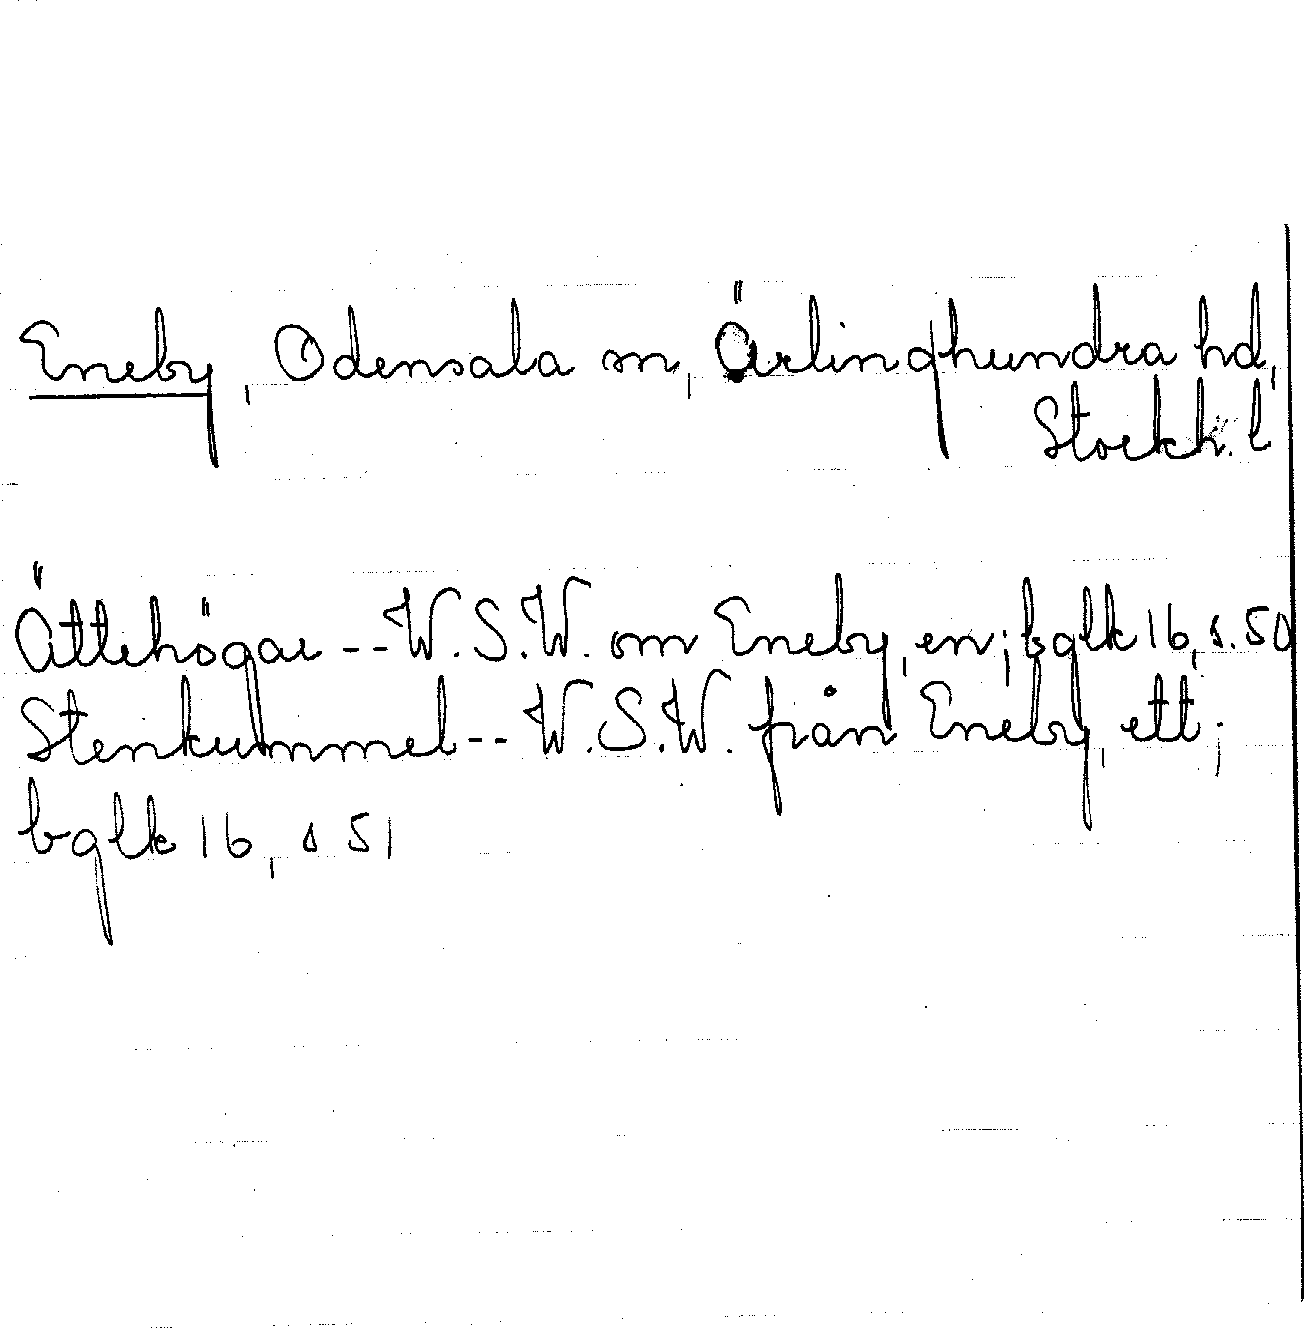 Eneby, Odensala sn, Ärlinghundra hd,
Stockh. l
Ättehögar -- W.S.W. om Eneby, en; bglk 16, s. 50
Stenkummel -- W.S.W. från Eneby, ett;
bglk 16, s 51